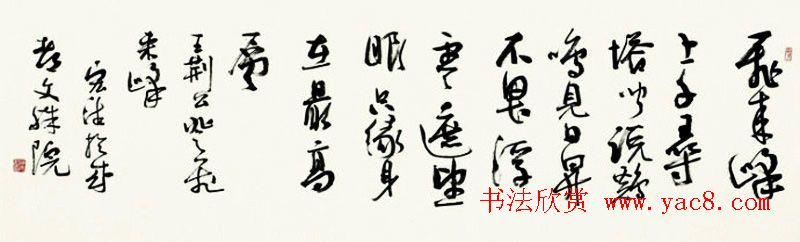 飛来峰
上千尋
塔聞說鷄
鳴見日昇
不畏浮
雲遮望
眼只緣身
在最高
層
王荆公飛
来峰
宏於成
都文殊院
书法欣赏 www.yac8.com